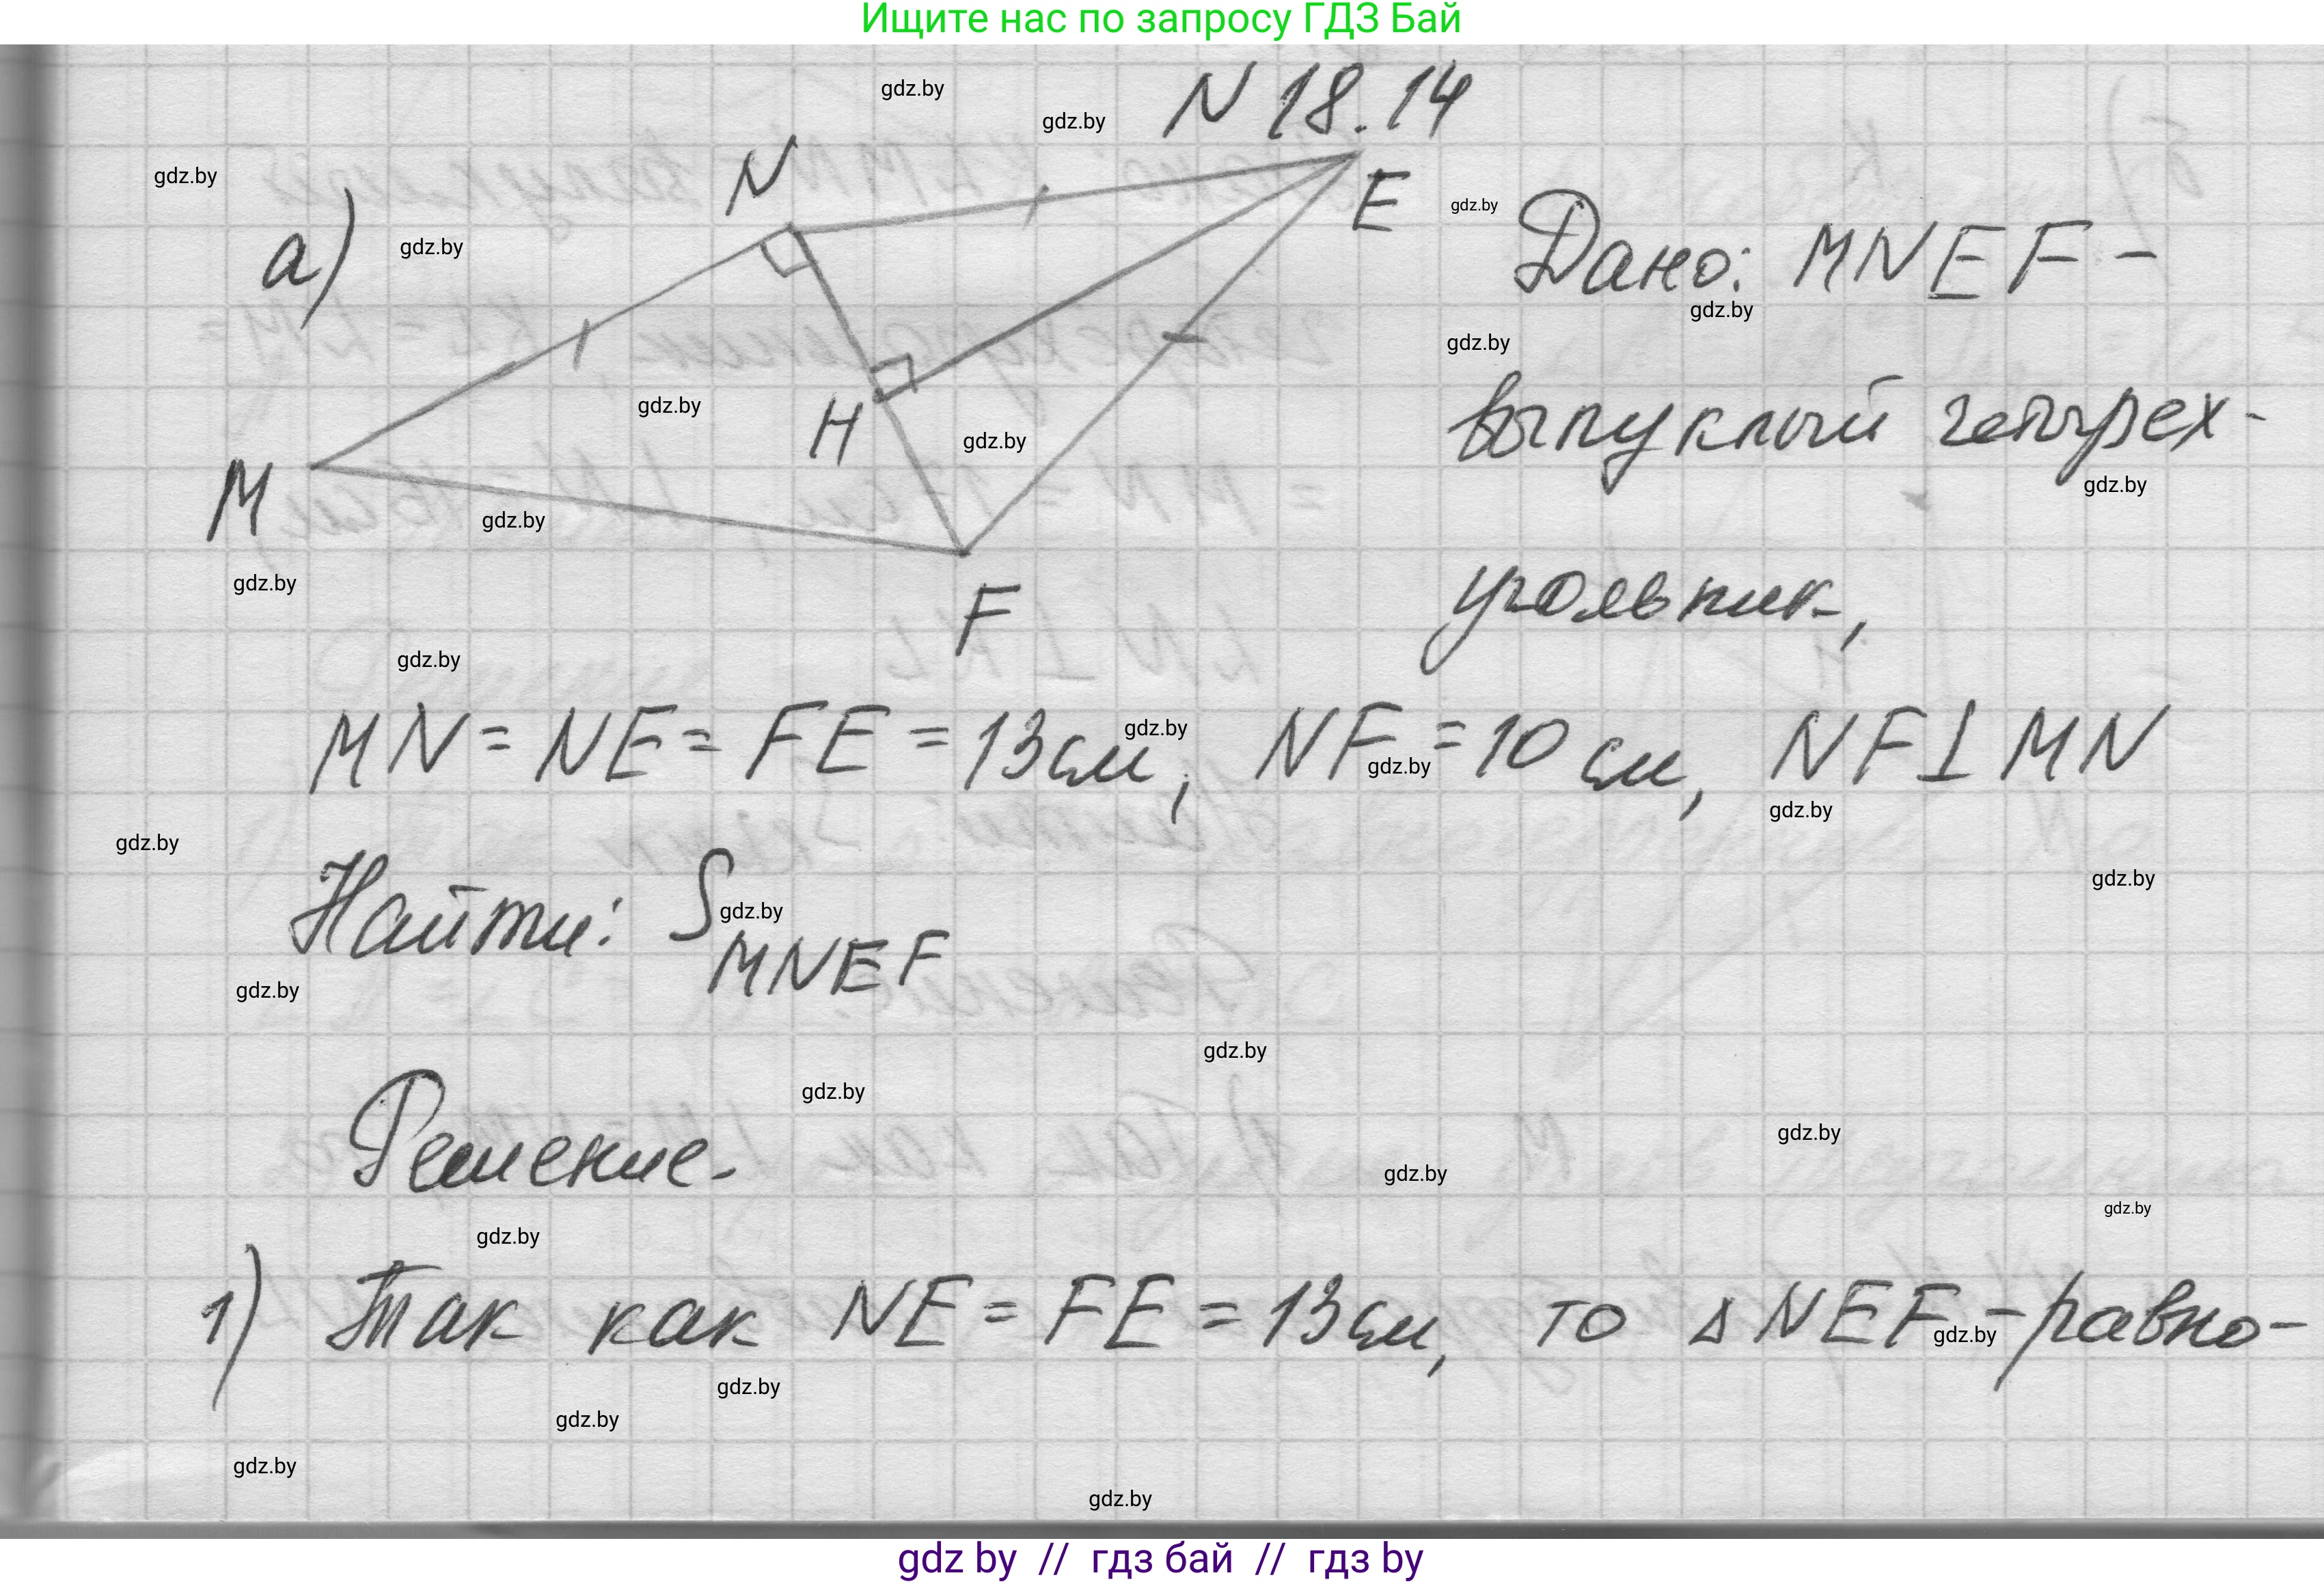 Ищите нас по запросу ГДЗ Бай
gdz.by
gdz.by
N 18.14
gdz.by
N
E
gdz.by
а)
gdz.by
Дано: MNEF -
gdz.by
gdz.by
H
gdz.by
gdz.by
выпуклый четырех-
gdz.by
M
gdz.by
gdz.by
F
угольник,
gdz.by
MN = NE = FE = 13 см, NF = 10 см, NF ⊥ MN
gdz.by
gdz.by
gdz.by
gdz.by
gdz.by
Найти: S MNEF
gdz.by
gdz.by
gdz.by
gdz.by
Решение.
gdz.by
gdz.by
gdz.by
gdz.by
1) Так как NE = FE = 13 см, то ΔNEF - равно-
gdz.by
gdz.by
gdz.by
gdz.by
gdz.by
gdz by // гдз бай // гдз by